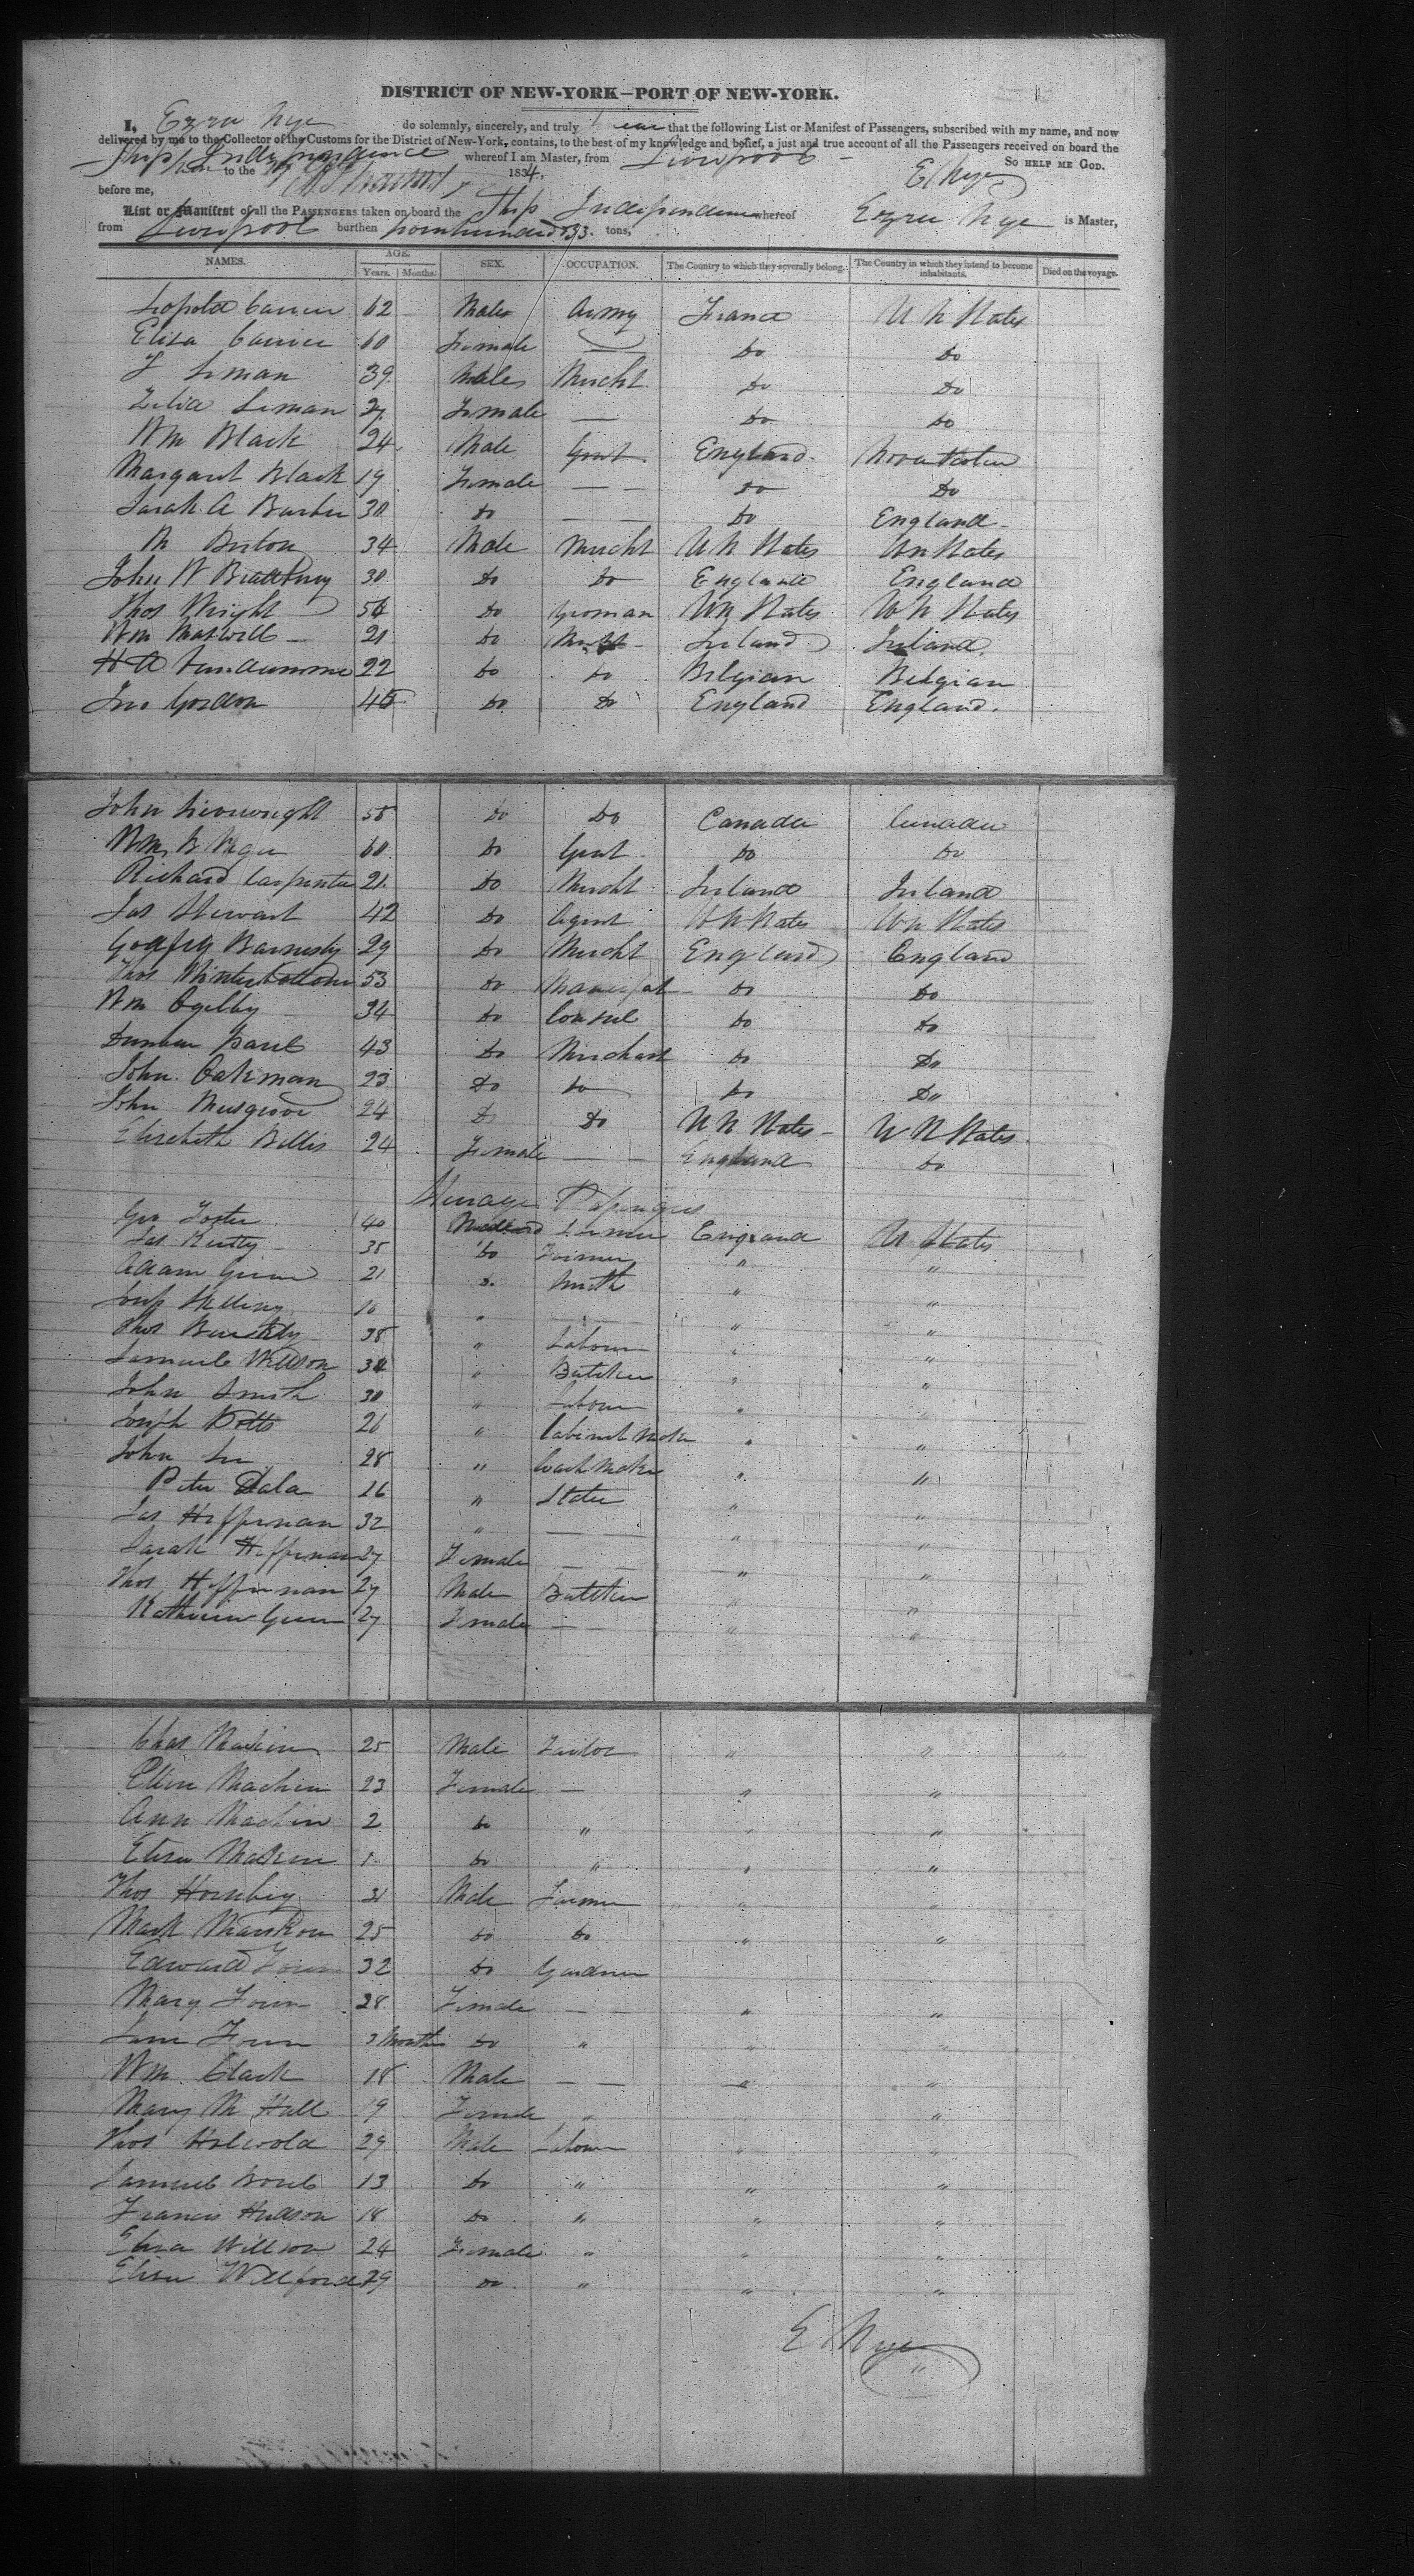 DISTRICT OF NEW-YORK—PORT OF NEW-YORK.
I, Ezra Nye do solemnly, sincerely, and truly that the following List or Manifest of Passengers, subscribed with my name, and now
delivered by me to the Collector of the Customs for the District of New-York, contains, to the best of my knowledge and belief, a just and true account of all the Passengers received on board the
Ship Independence whereof I am Master, from Liverpool SO HELP ME GOD.
to the 1834. E Nye
before me,
List or Manifest of all the PASSENGERS taken on board the Ship Independence whereof Ezra Nye is Master,
from Liverpool burthen tons,
NAMES. AGE. SEX. OCCUPATION. The Country to which they severally belong. The Country in which they intend to become inhabitants. Died on the voyage.
Years. Months.
Leopold 62 Male Army France Un States
Eliza 60 Female — Do Do
F Leman 39 Male Mercht Do Do
Zelia Leman 27 Female — Do Do
Wm Black 24 Male Gent England Nova Scotia
Margaret Black 19 Female — — Do Do
Sarah A Barber 30 Do — — Do England
M 34 Male Mercht Un States Un States
John W Bradbury 30 Do Do England England
Thos Wright Do Yeoman Un States Un States
Wm Maxwell 21 Do Ireland Ireland
H A 22 Do Do Belgian Belgian
Jno Gordon 45 Do Do England England.
John 55 Do Do Canada Canada
Wm B 60 Do Gent Do Do
Richard Carpenter 21 Do Mercht Ireland Ireland
Jas Stewart 42 Do Agent Un States Un States
Godfrey Barnesby 29 Do Mercht England England
Thos Winterbottom 53 Do Do Do
Wm Ogilby 34 Do Consul Do Do
Duncan 43 Do Merchant Do Do
John Oakman 23 Do Do Do Do
John Musgrove 24 Do Do Un States Un States
Elizebeth Bellis 24 Female — England Do
Steerage Passengers
Geo Foster 40 England Un States
Jas 35 Do Farmer " "
Adam 21 Do Smith " "
" — " "
Thos 38 " Labour " "
Samuel Willson 34 " Butcher " "
John Smith 30 " Labour " "
Joseph Potts 26 " Cabinet Maker " "
John Lee 28 " Coach Maker " "
Peter Dala 26 " Slater " "
Jas Heffernan 32 " — — " "
Sarah Heffernan 27 Female — " "
Thos Heffernan 27 Male Butcher " "
Katherine Green 27 Female — " "
Chas Machin 25 Male Tailor " "
Ellen Machin 23 Female — " "
Ann Machin 2 Do " " "
Eliza Machin 1 Do " " "
Thos Hornbey 31 Male Farmer " "
Mark 25 Do Do " "
Edward 32 Do Gardner
Mary 28 Female — — " "
3 Months Do " " "
Wm Clark 18 Male — — " "
Mary M Hall 19 Female " "
Thos 29 Male Labour " "
Samuel 13 Do " " "
Francis Hudson 18 Do " " "
Eliza Willson 24 Female " " "
Eliza 29 Do " " "
E Nye